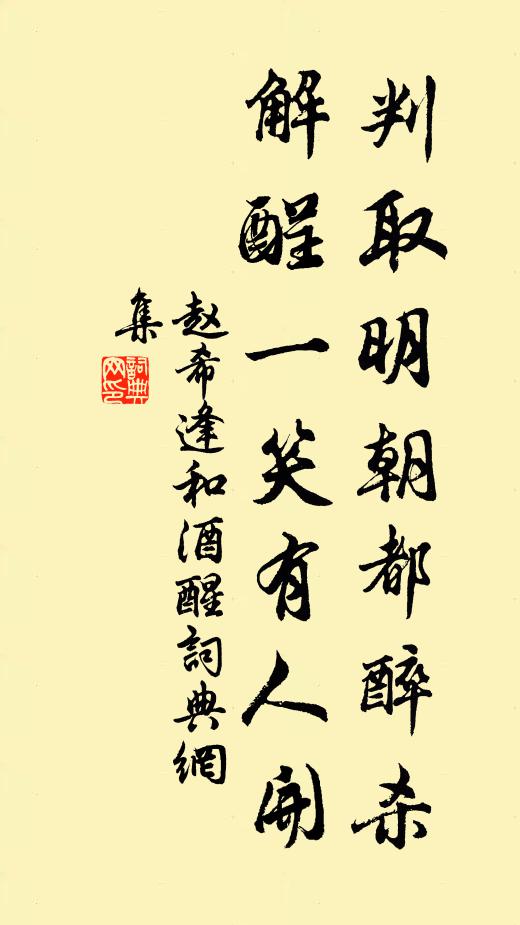 判取明朝都醉杀
解酲一笑有人开
赵希逢和酒醒詞典網
集
詞典网印